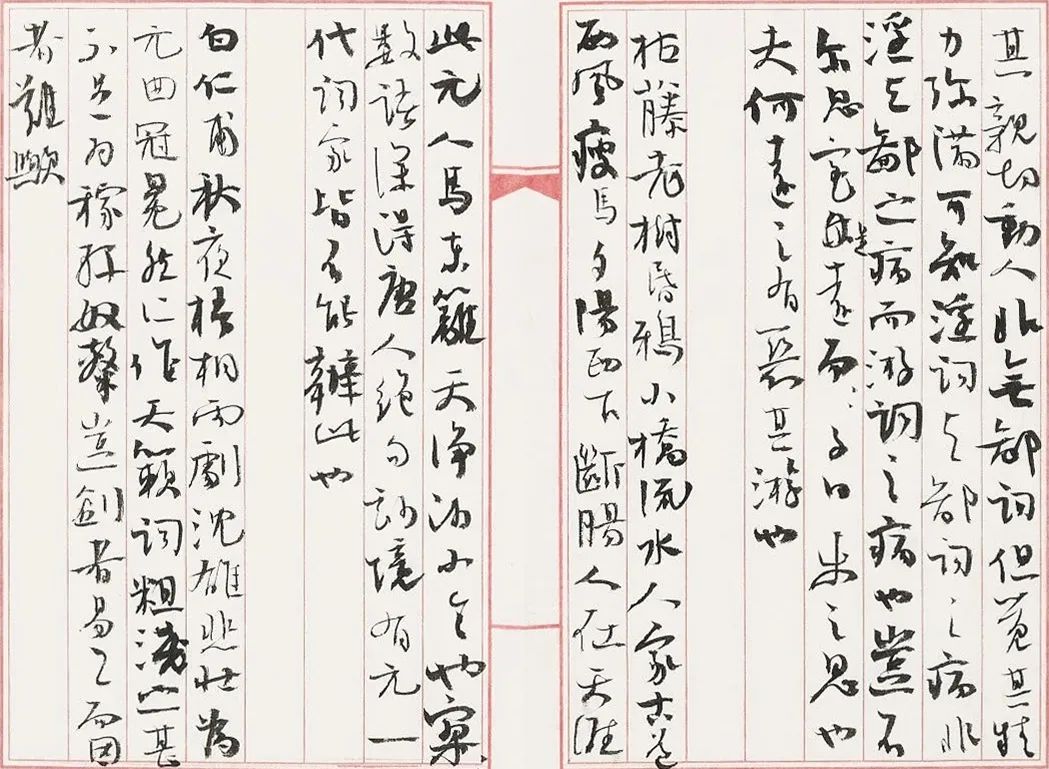 其親切動人非無鄙詞但覺其精
力弥滿可知淫詞与鄙詞之病非
淫与鄙之病而游詞之病也豈不
尔思室是遠而子曰未之思也
夫何遠之有惡其游也
枯藤老樹昏鴉小橋流水人家古道
西風瘦馬夕陽西下斷腸人在天涯
此元人馬東籬天淨沙小令也寥、
數語深得唐人絕句妙境有元一
代詞家皆不能辦此也
白仁甫秋夜梧桐雨劇沈雄悲壯為
元曲冠冕然所作天籟詞粗淺之甚
不足為稼軒奴隸豈創者易工而因
者難歟